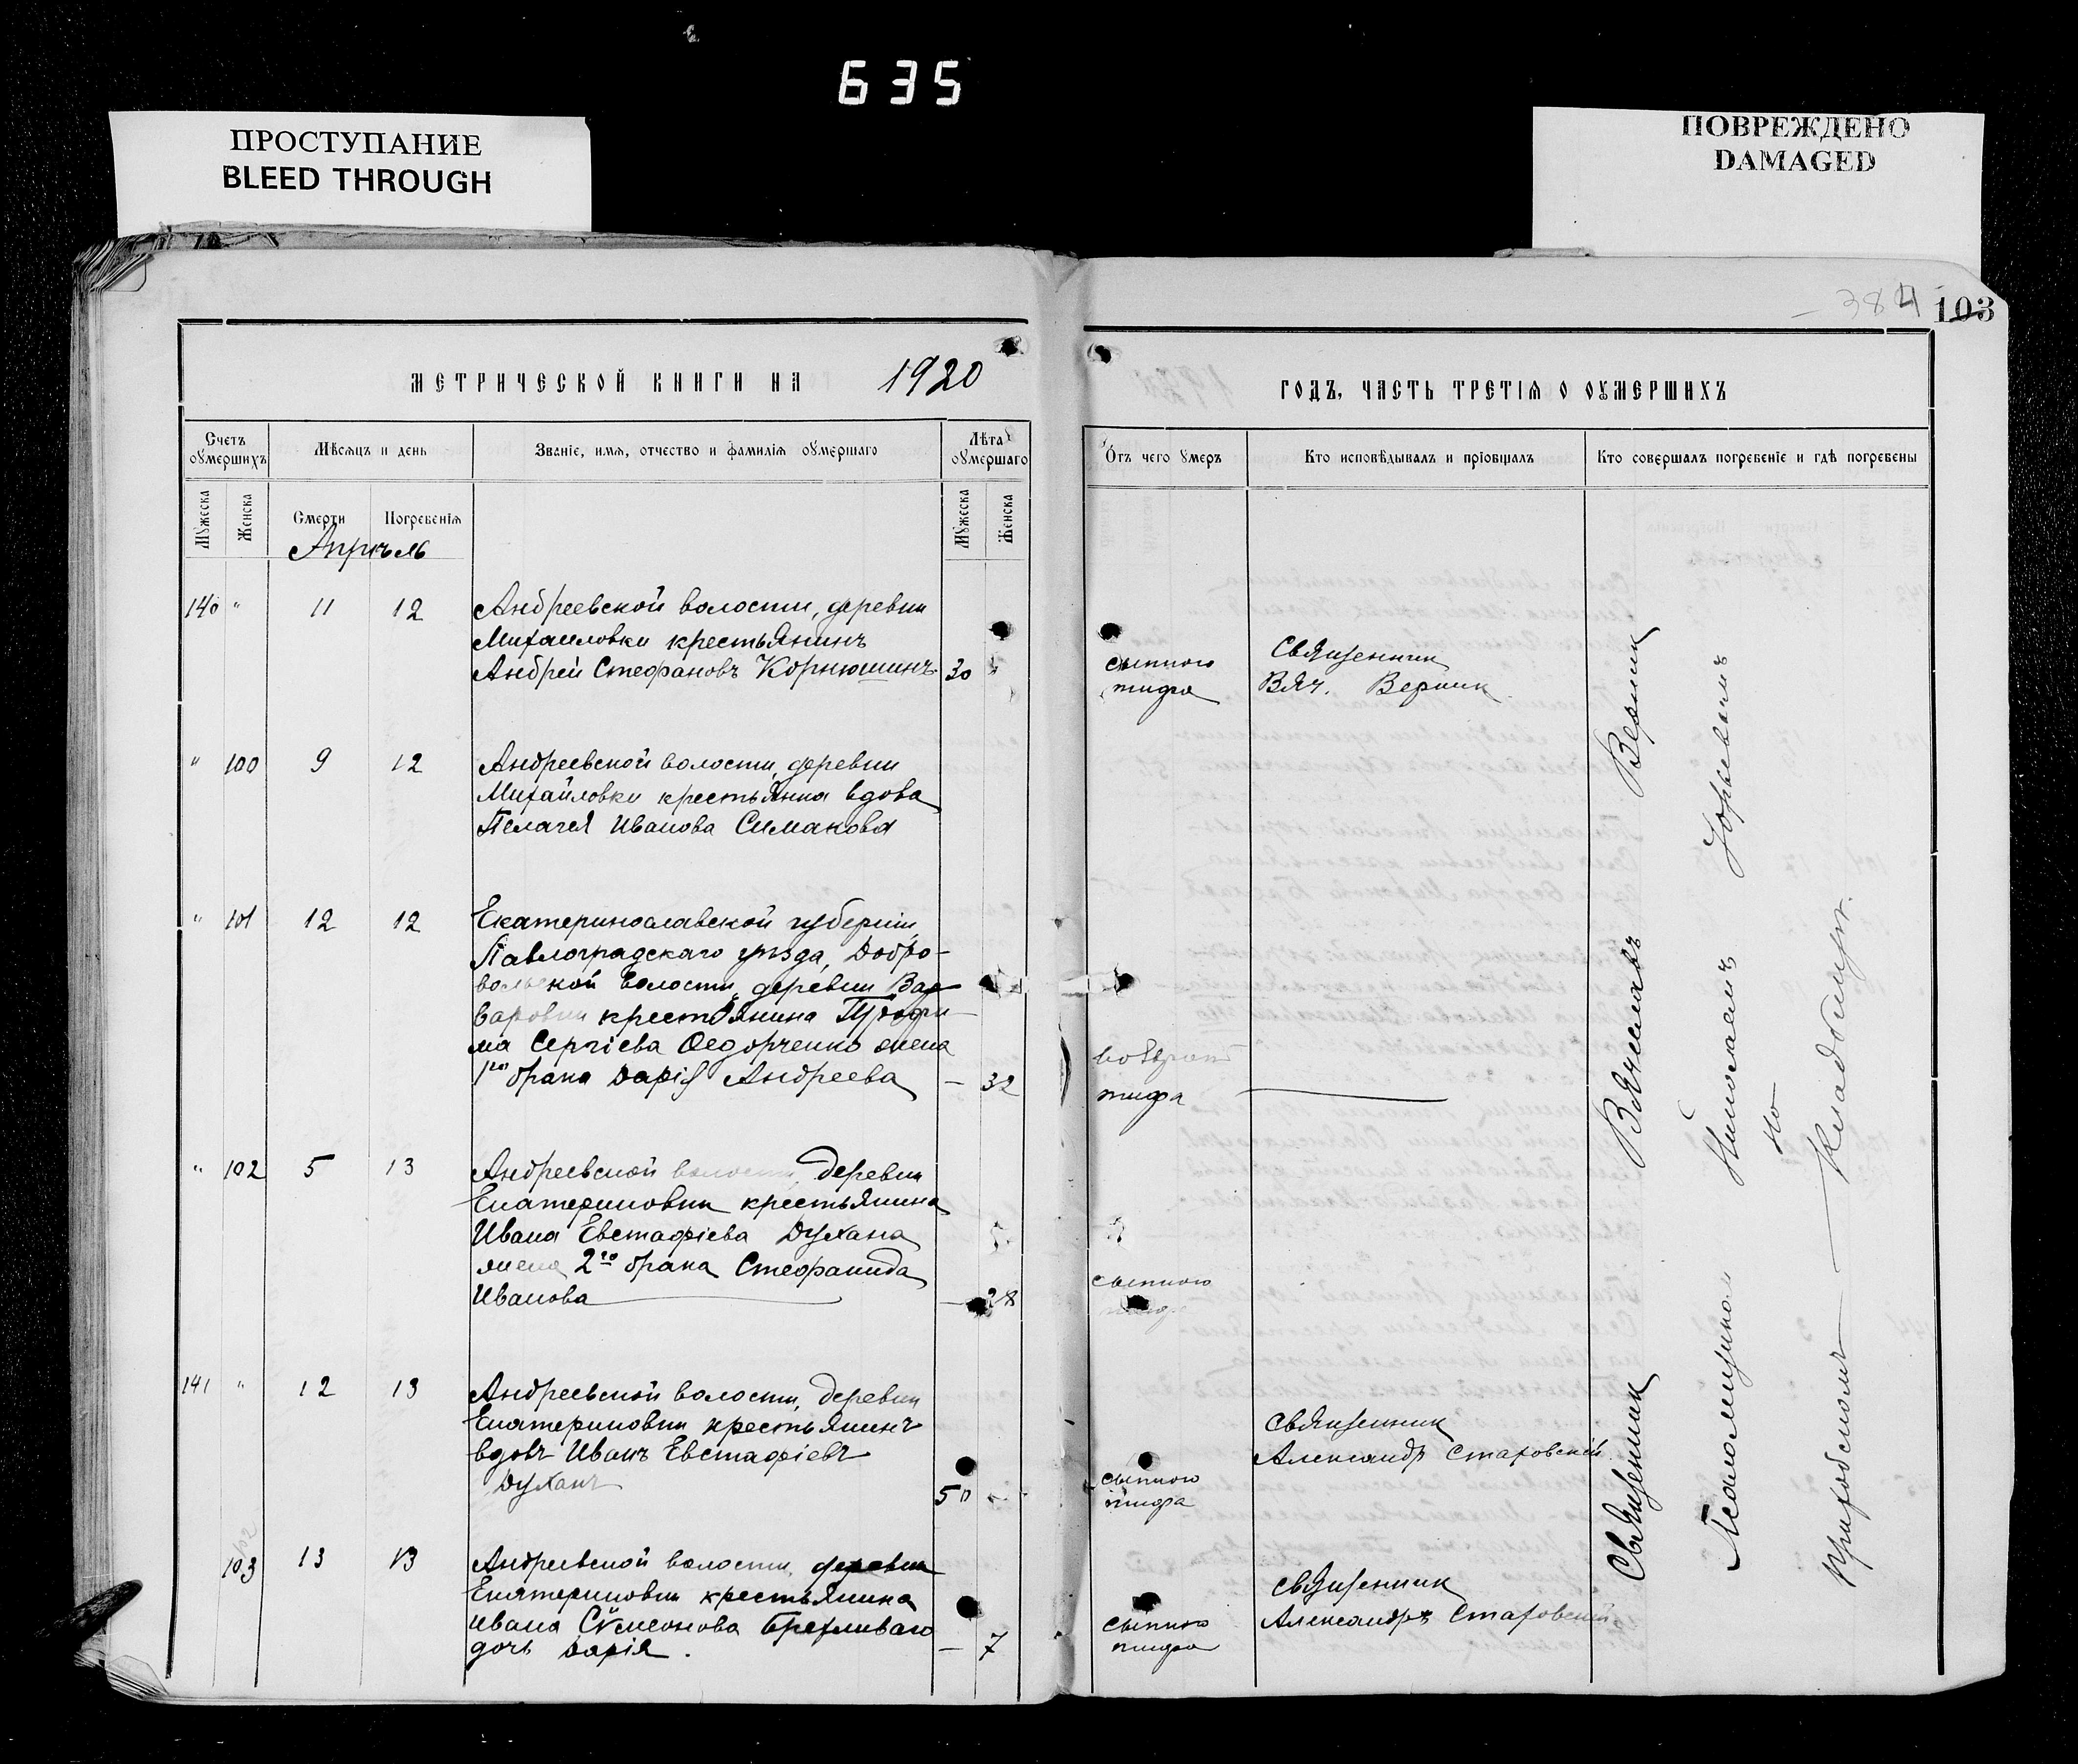 635
ПРОСТУПАНИЕ
BLEED THROUGH
ПОВРЕЖДЕНО
DAMAGED
384 103
МЕТРИЧЕСКОЙ КНИГИ НА 1920
Счетъ оумершихъ
Мѣсяцъ и день
Званіе, имя, отчество и фамилія оумершаго
Лѣта оумершаго
Мужеска
Женска
Смерти
Погребенія
Мужеска
Женска
Апрѣль
140 " 11 12 Андреевской волости, деревни
Михайловки крестьянинъ
Андрей Стефановъ Корнюшинъ 30 "
" 100 9 12 Андреевской волости, деревни
Михайловки крестьянка вдова
Пелагея Иванова Симакова
" 101 12 12 Екатеринославской губерніи,
Павлоградскаго уѣзда, Добро-
вольской волости, деревни Вар-
варовки крестьянина Трофи-
ма Сергіева Федорченко жена
1го брака Дарія Андреева — 32
" 102 5 13 Андреевской волости, деревни
Екатериновки крестьянина
Ивана Евстафіева Духана
жена 2го брака Стефанида
Иванова — 28
141 " 12 13 Андреевской волости, деревни
Екатериновки крестьянинъ
вдовъ Иванъ Евстафіевъ
Духанъ 50
103 13 13 Андреевской волости, деревни
Екатериновки крестьянина
Ивана Сѵмеонова
дочь Дарія. — 7
ГОДЪ, ЧАСТЬ ТРЕТІЯ О ОУМЕРШИХЪ
Отъ чего умеръ
Кто исповѣдывалъ и пріобщалъ
Кто совершалъ погребеніе и гдѣ погребены
сыпного
тифа
Священник
Вяч. Верник
тифа
сыпного
сыпного
тифа
Священник
Александръ Стаховскій
сыпного
тифа
Священник
Александръ Стаховскій
Священник Вячеславъ Верник
Псаломщиком Николаемъ Юрьевымъ
на
Приходскомъ — Кладбищѣ.